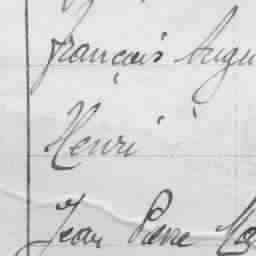 françois Augu
Henri
Jean Pierre